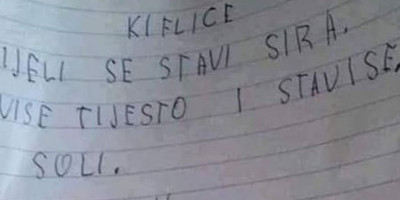 KIFLICE
IJELI SE STAVI SIRA.
VISE TIJESTO I STAVISE
SOLI.